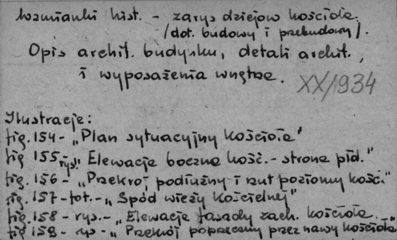 Wzmianki hist. - zarys dziejów kościoła.
(dot. budowy i przebudowy).
Opis archit. budynku, detali archit.,
i wyposażenia wnętrza.
XX/1934
Ilustracje:
fig. 154 - "Plan sytuacyjny Kościoła"
fig 155 - rys. "Elewacja boczna kość. - strona płd."
fig. 156 - "Przekrój podłużny i rzut poziomy kość."
fig. 157 - fot. - "Spód wieży kościelnej"
fig. 158 - rys. - "Elewacja fasady zach. kościoła.
fig. 159 - rys - "Przekrój poprzeczny przez nawy kościoła"